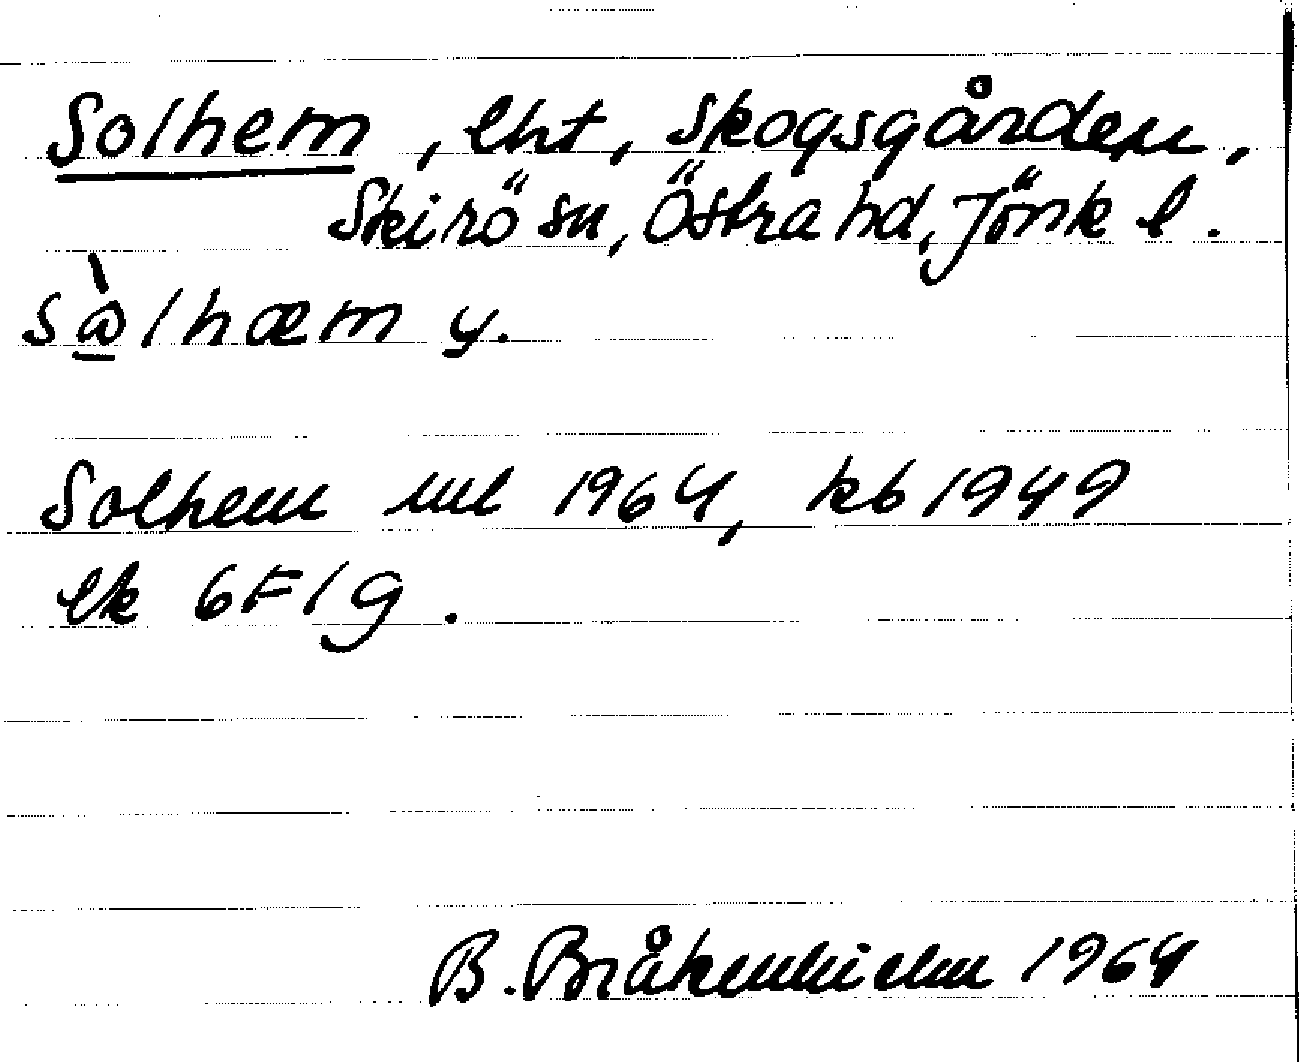 Solhem, lht, Skogsgården,
Skirö sn, Östra hd, Jönk l.
sòlhæm y.
Solhem ml 1964, kb 1949
ek 6F1g.
B. Bråkenhielm 1964